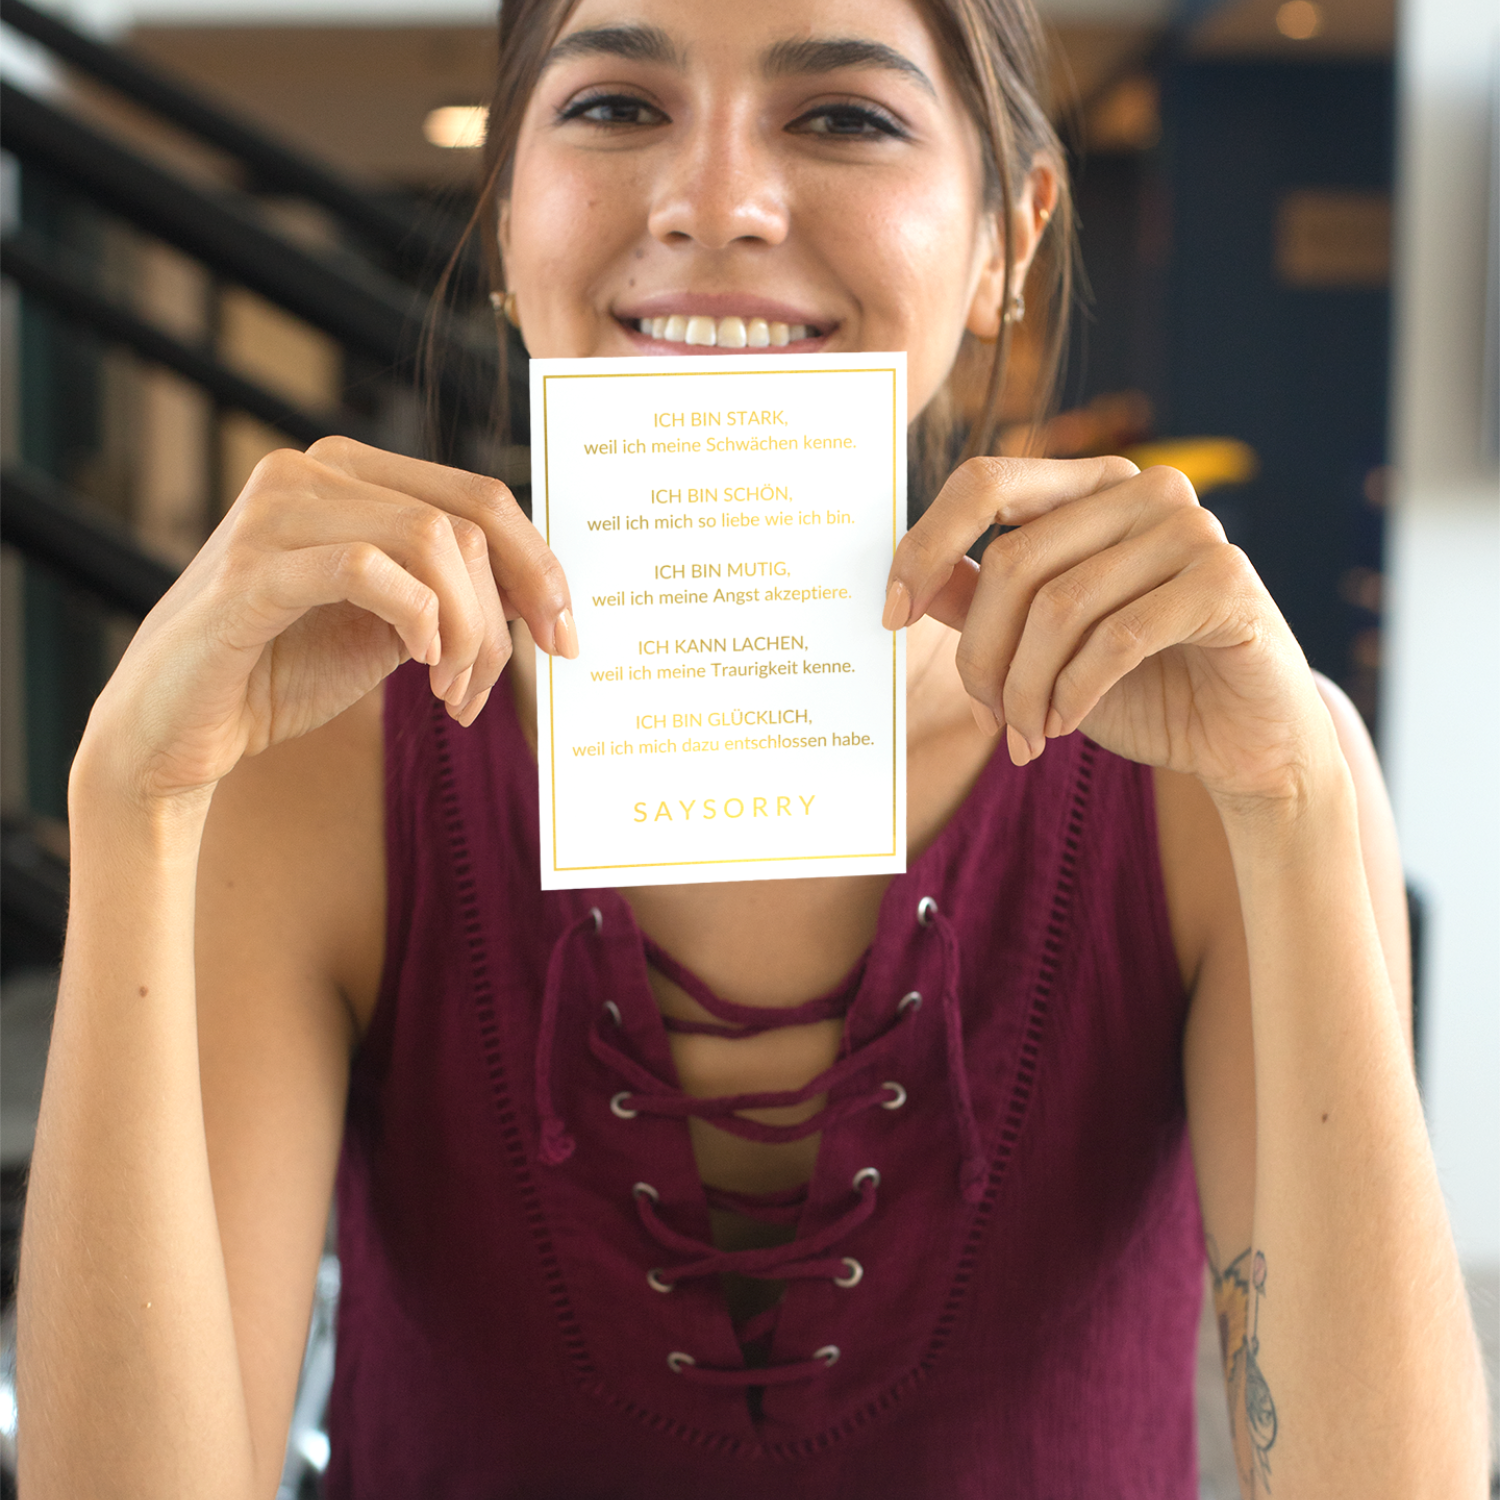 ICH BIN STARK,
weil ich meine Schwächen kenne.
ICH BIN SCHÖN,
weil ich mich so liebe wie ich bin.
ICH BIN MUTIG,
weil ich meine Angst akzeptiere.
ICH KANN LACHEN,
weil ich meine Traurigkeit kenne.
ICH BIN GLÜCKLICH,
weil ich mich dazu entschlossen habe.
SAYSORRY